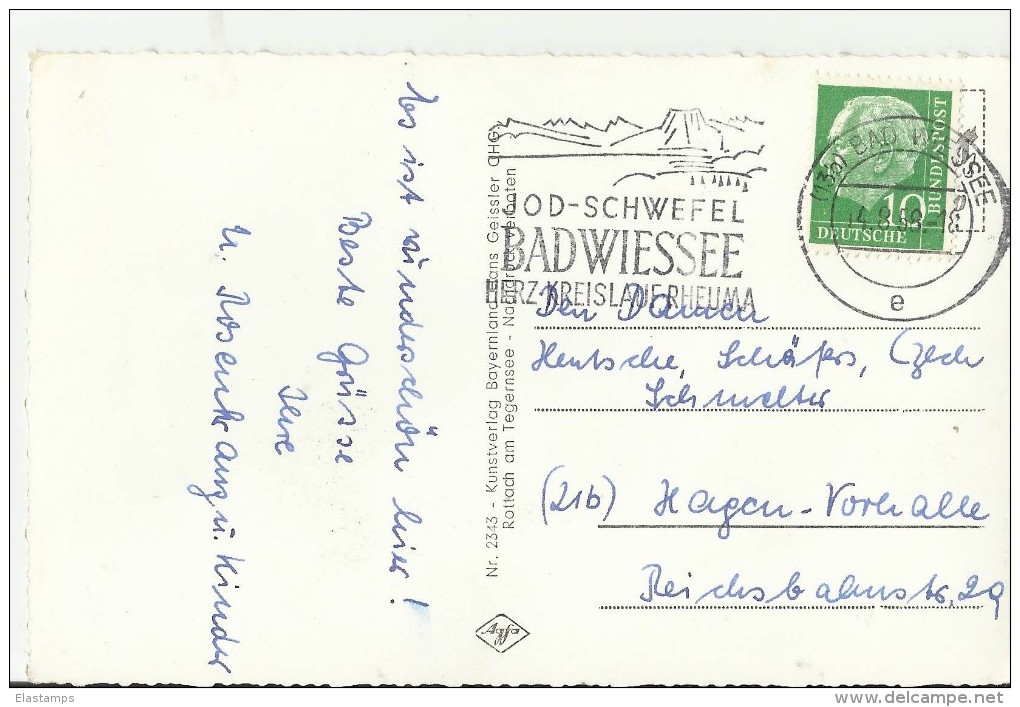 Es ist wunderschön hier!
Beste Grüsse
Ihre
U. Rosenkranz u. Kinder
Nr. 2343 - Kunstverlag Bayernland Hans Geissler OHG,
Rottach am Tegernsee - Nachdruck verboten
Agfa
JOD-SCHWEFEL
BAD WIESSEE
HERZ KREISLAUF RHEUMA
(13b) BAD WIESSEE
8.58-18
e
10
DEUTSCHE
BUNDESPOST
Den Damen
Hentsche, Schäfers, Czech
Schmelter
(21b) Hagen-Vorhalle
Reichsbahnstr. 29
Elastamps
www.delcampe.net